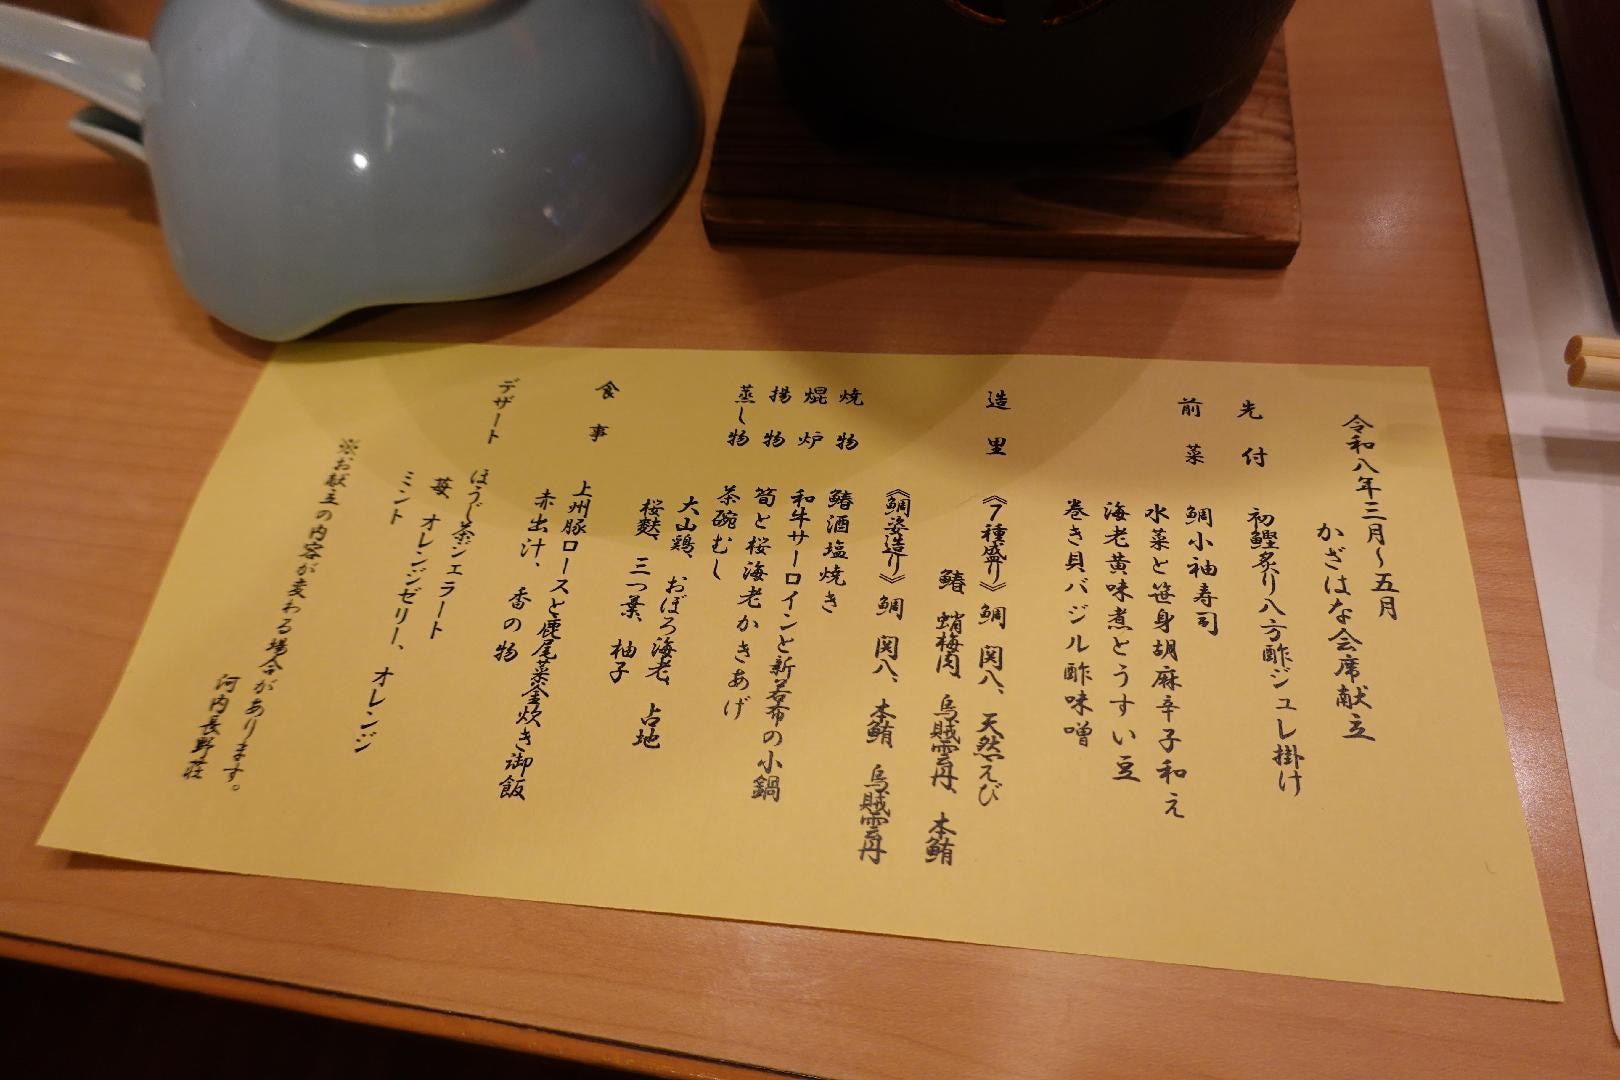 令和八年三月～五月
かざはな会席献立
先付 初鰹炙り八方酢ジュレ掛け
前菜 鯛小袖寿司
水菜と笹身胡麻辛子和え
海老黄味煮とうすい豆
巻き貝バジル酢味噌
造里 《7種盛り》鯛、関八、天然えび
鰆、蛸梅肉、烏賊雲丹、本鮪
《鯛姿造り》鯛、関八、本鮪、烏賊雲丹
焼物 鰆酒塩焼き
焜炉 和牛サーロインと新若布の小鍋
揚物 筍と桜海老かきあげ
蒸し物 茶碗むし
大山鶏、おぼろ海老、占地
桜麩、三つ葉、柚子
食事 上州豚ロースと鹿尾菜釜炊き御飯
赤出汁、香の物
デザート ほうじ茶ジェラート
苺、オレンジゼリー、オレンジ
ミント
※お献立の内容が変わる場合があります。
河内長野荘